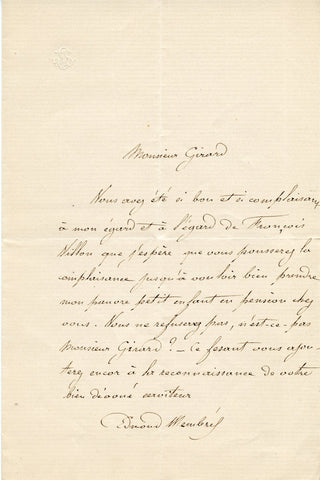 Monsieur Girard
Vous avez été si bon et si complaisant
à mon égard et à l'égard de François
Villon que j'espère que vous pousserez la
complaisance jusqu'à vouloir bien prendre
mon pauvre petit enfant en pension chez
vous. Vous ne refuserez pas, n'est-ce-pas
Monsieur Girard ? – Ce fesant vous ajou-
terez encor à la reconnaissance de votre
bien dévoué serviteur
Edmond